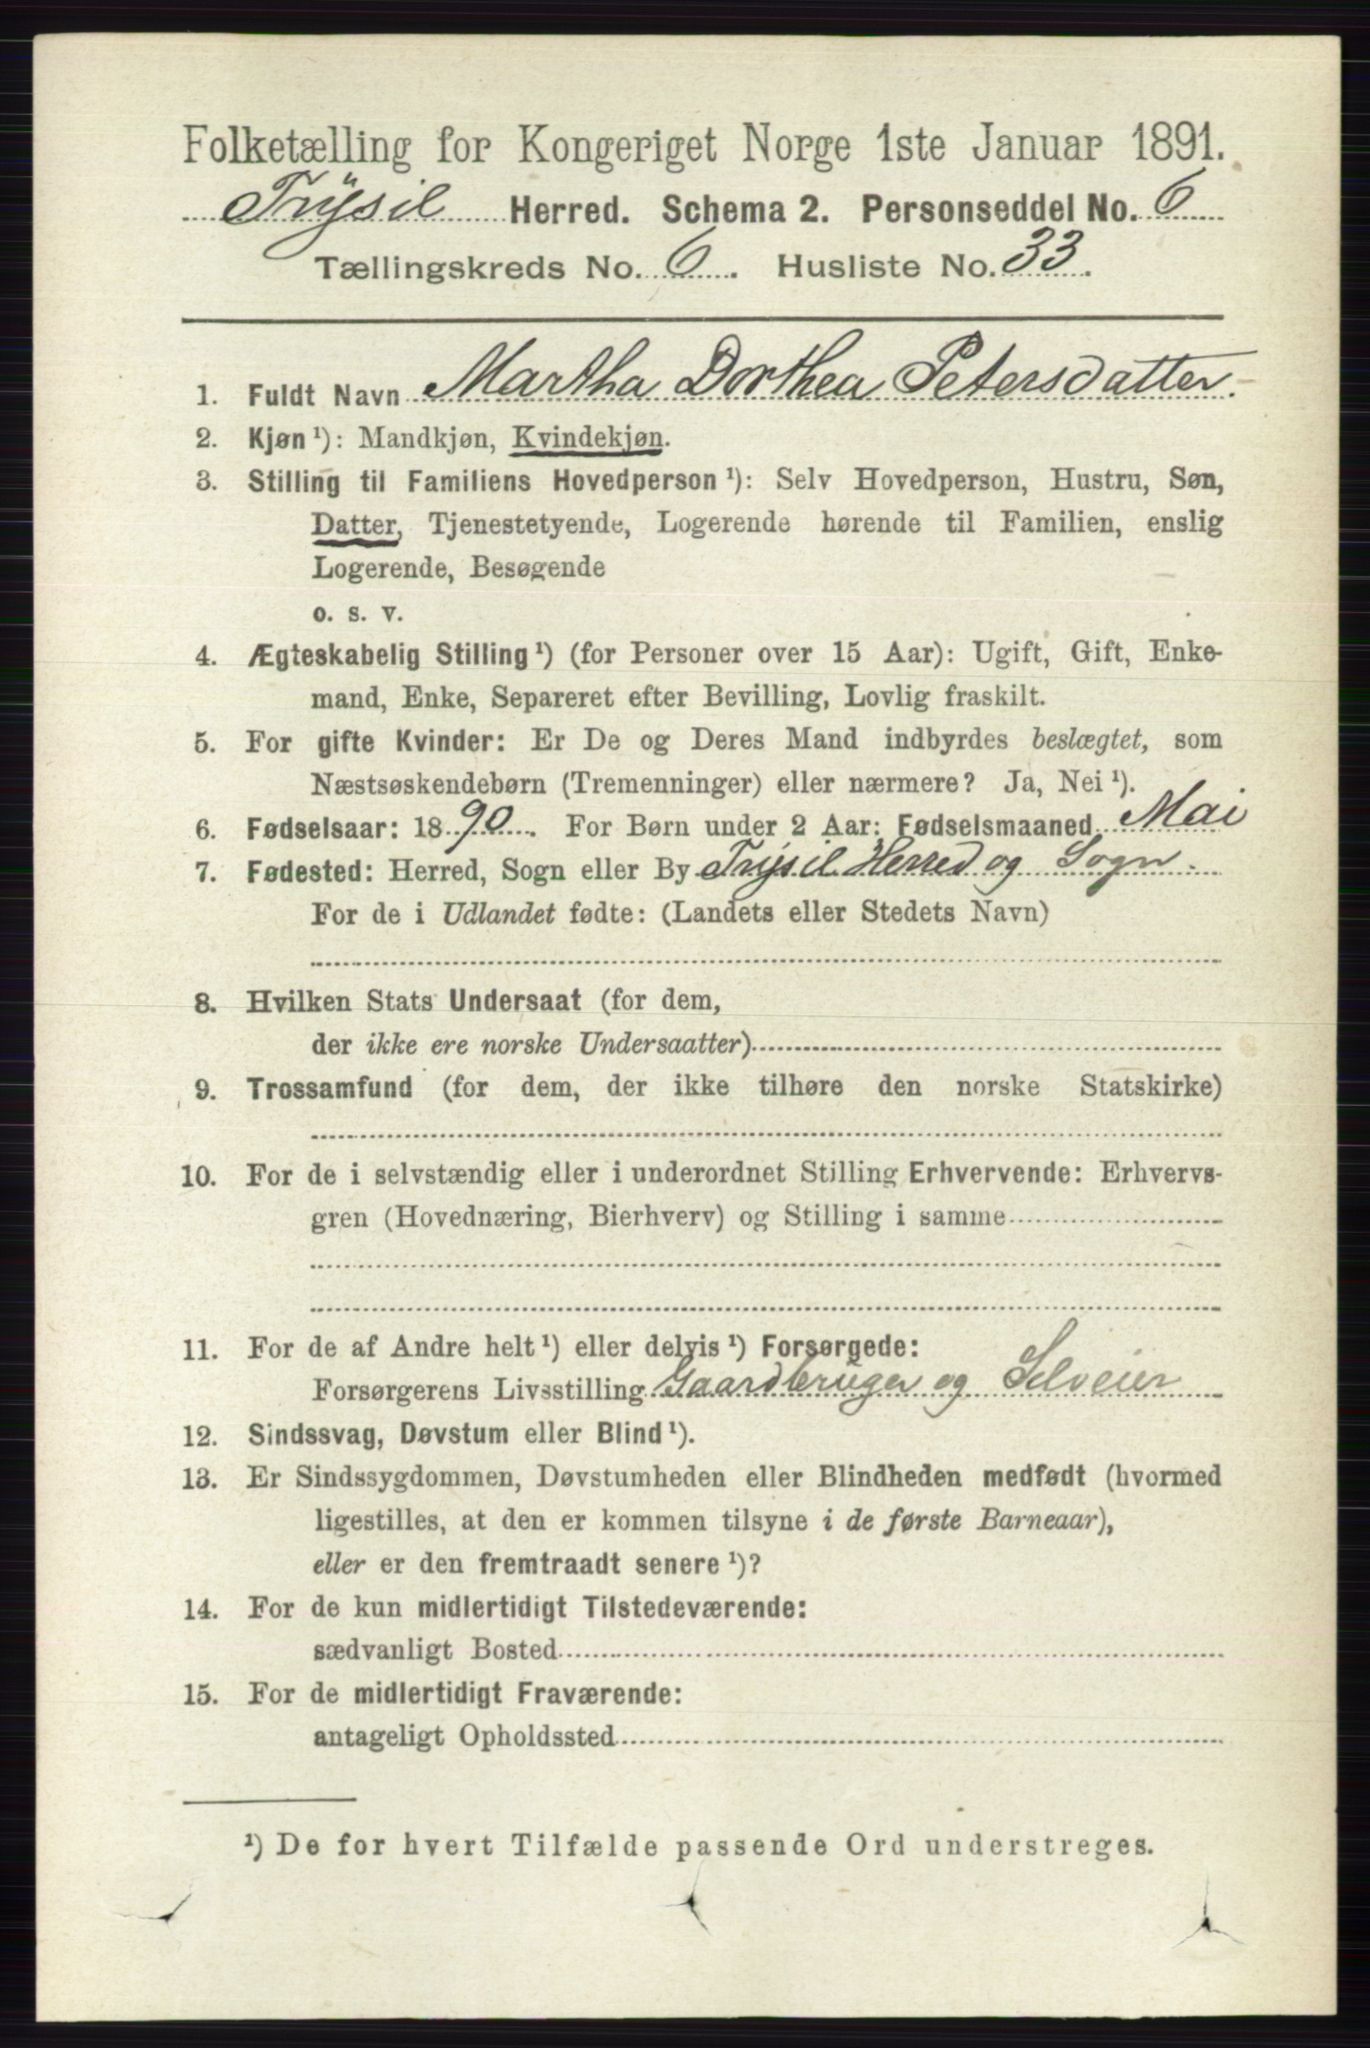 Folketælling for Kongeriget Norge 1ste Januar 1891.
Trysil Herred. Schema 2. Personseddel No. 6
Tællingskreds No. 6. Husliste No. 33.
1. Fuldt Navn Martha Dorthea Petersdatter.
2. Kjøn ¹): Mandkjøn, Kvindekjøn.
3. Stilling til Familiens Hovedperson ¹): Selv Hovedperson, Hustru, Søn,
Datter, Tjenestetyende, Logerende hørende til Familien, enslig
Logerende, Besøgende
o. s. v.
4. Ægteskabelig Stilling ¹) (for Personer over 15 Aar): Ugift, Gift, Enke-
mand, Enke, Separeret efter Bevilling, Lovlig fraskilt.
5. For gifte Kvinder: Er De og Deres Mand indbyrdes beslægtet, som
Næstsøskendebørn (Tremenninger) eller nærmere? Ja, Nei ¹).
6. Fødselsaar: 1890. For Børn under 2 Aar: Fødselsmaaned Mai
7. Fødested: Herred, Sogn eller By Trysil Herred og Sogn.
For de i Udlandet fødte: (Landets eller Stedets Navn)
8. Hvilken Stats Undersaat (for dem,
der ikke ere norske Undersaatter)
9. Trossamfund (for dem, der ikke tilhøre den norske Statskirke)
10. For de i selvstændig eller i underordnet Stilling Erhvervende: Erhvervs-
gren (Hovednæring, Bierhverv) og Stilling i samme
11. For de af Andre helt ¹) eller delvis ¹) Forsørgede:
Forsørgerens Livsstilling Gaardbruger og Selveier
12. Sindssvag, Døvstum eller Blind ¹).
13. Er Sindssygdommen, Døvstumheden eller Blindheden medfødt (hvormed
ligestilles, at den er kommen tilsyne i de første Barneaar),
eller er den fremtraadt senere ¹)?
14. For de kun midlertidigt Tilstedeværende:
sædvanligt Bosted
15. For de midlertidigt Fraværende:
antageligt Opholdssted
¹) De for hvert Tilfælde passende Ord understreges.